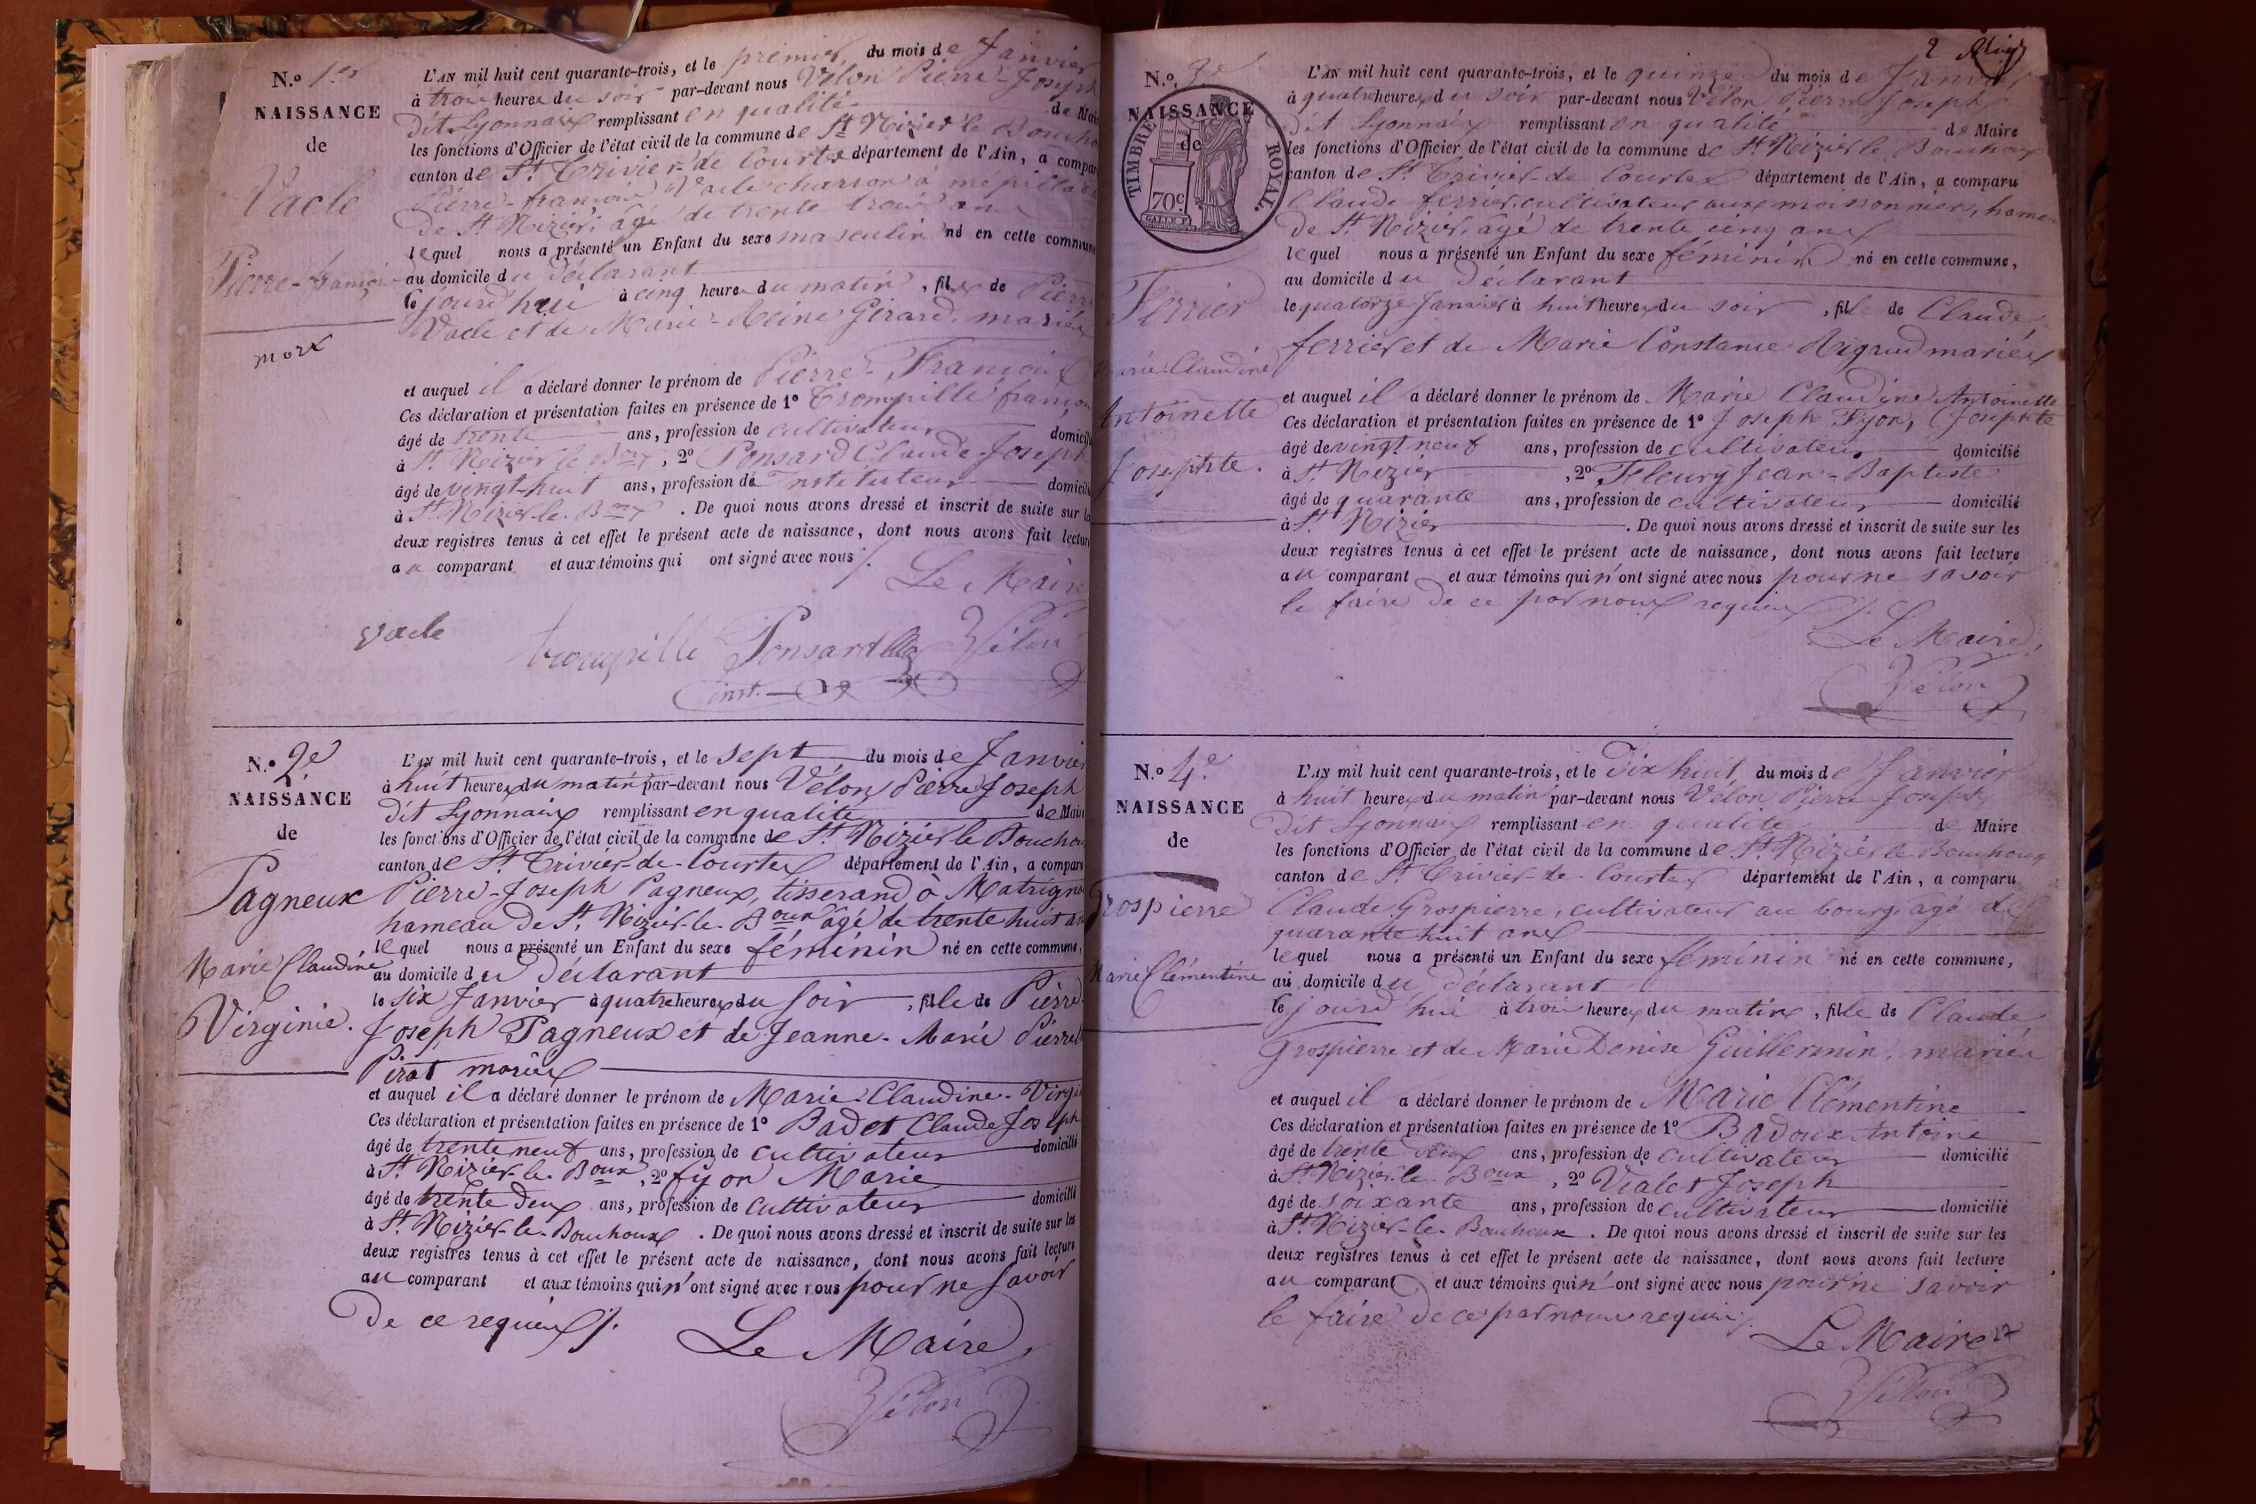 N.º 1er
NAISSANCE
de
Vacle
Pierre-françois
mort
L'AN mil huit cent quarante-trois, et le premier du mois de Janvier
à trois heures du soir par-devant nous Vélon Pierre-Joseph
Dit Lyonnais remplissant en qualité de Mai
les fonctions d'Officier de l'état civil de la commune de St Nizier le Boucho
canton de St Trivier-de Courtes département de l'Ain, a compar
Pierre-françois Vacle charron à
de St Nizier, âgé de trente trois ans
lequel nous a présenté un Enfant du sexe masculin né en cette commune
au domicile du déclarant
le jourd'hui à cinq heures du matin, fils de Pierre
Vacle et de Marie-Reine Girard, mariés
et auquel il a déclaré donner le prénom de Pierre-François
Ces déclaration et présentation faites en présence de 1º Trompille françois
âgé de trente ans, profession de cultivateur domicilié
à St Nizier le Boux, 2º Ponsard Claude-Joseph
âgé de vingt-huit ans, profession de Instituteur domicilié
à St Nizier-le-Boux. De quoi nous avons dressé et inscrit de suite sur les
deux registres tenus à cet effet le présent acte de naissance, dont nous avons fait lecture
au comparant et aux témoins qui ont signé avec nous /.
Le Maire
vacle trompille Ponsard Vélon
inst.
N.º 2e
NAISSANCE
de
Pagneux
Marie Claudine
Virginie.
L'AN mil huit cent quarante-trois, et le sept du mois de Janvier
à huit heures du matin par-devant nous Vélon Pierre Joseph
Dit Lyonnais remplissant en qualité de Mair
les fonctions d'Officier de l'état civil de la commune de St Nizier le Bouchou
canton de St Trivier-de-Courtes département de l'Ain, a compar
Pierre-Joseph Pagneux, tisserand à Matrigna
hameau de St Nizier-le-Boux âgé de trente huit ans
lequel nous a présenté un Enfant du sexe féminin né en cette commune,
au domicile du Déclarant
le six Janvier à quatre heures du soir, fille de Pierre
Joseph Pagneux et de Jeanne-Marie Pierrette
Pirat mariés
et auquel il a déclaré donner le prénom de Marie-Claudine-Virgi
Ces déclaration et présentation faites en présence de 1º Badet Claude Joseph
âgé de trente neuf ans, profession de cultivateur domicilié
à St Nizier-le-Boux, 2º fyon Marie
âgé de trente deux ans, profession de cultivateur domicilié
à St Nizier-le-Bouchoux. De quoi nous avons dressé et inscrit de suite sur les
deux registres tenus à cet effet le présent acte de naissance, dont nous avons fait lecture
au comparant et aux témoins qui n'ont signé avec nous pour ne savoir
de ce requis /.
Le Maire
Vélon
2
N.º 3e
NAISSANCE
de
TIMBRE ROYAL.
70c
Ferrier
Marie Claudine
Antoinette
Josephte.
L'AN mil huit cent quarante-trois, et le quinze du mois de Janvier
à quatre heures du soir par-devant nous Vélon Pierre Joseph
Dit Lyonnais remplissant en qualité de Maire
les fonctions d'Officier de l'état civil de la commune de St Nizier le Bouchoux
canton de St Trivier-de Courtes département de l'Ain, a comparu
Claude ferrier, cultivateur aux moissonniers, hameau
de St Nizier, âgé de trente cinq ans
lequel nous a présenté un Enfant du sexe féminin né en cette commune,
au domicile du Déclarant
le quatorze Janvier à huit heures du soir, fille de Claude
ferrier et de Marie Constance Rigaud mariés
et auquel il a déclaré donner le prénom de Marie Claudine Antoinette
Ces déclaration et présentation faites en présence de 1º Joseph Fyon, (Josephte
âgé de vingt neuf ans, profession de cultivateur domicilié
à St Nizier, 2º Fleury Jean-Baptiste
âgé de quarante ans, profession de cultivateur domicilié
à St Nizier. De quoi nous avons dressé et inscrit de suite sur les
deux registres tenus à cet effet le présent acte de naissance, dont nous avons fait lecture
au comparant et aux témoins qui n'ont signé avec nous pour ne savoir
le faire de ce par nous requis /.
Le Maire
Vélon
N.º 4e
NAISSANCE
de
Grospierre
Marie Clémentine
L'AN mil huit cent quarante-trois, et le dix huit du mois de Janvier
à huit heures du matin par-devant nous Vélon Pierre-Joseph
Dit Lyonnais remplissant en qualité de Maire
les fonctions d'Officier de l'état civil de la commune de St Nizier le Bouchoux
canton de St Trivier-de-Courtes département de l'Ain, a comparu
Claude Grospierre, cultivateur au bourg, âgé de
quarante huit ans
lequel nous a présenté un Enfant du sexe féminin né en cette commune,
au domicile du déclarant
le jourd'hui à trois heures du matin, fille de Claude
Grospierre et de Marie Denise Guillermin, mariés
et auquel il a déclaré donner le prénom de Marie Clémentine
Ces déclaration et présentation faites en présence de 1º Badoux Antoine
âgé de trente deux ans, profession de cultivateur domicilié
à St Nizier le Boux, 2º Vialet Joseph
âgé de soixante ans, profession de cultivateur domicilié
à St Nizier-le-Bouchoux. De quoi nous avons dressé et inscrit de suite sur les
deux registres tenus à cet effet le présent acte de naissance, dont nous avons fait lecture
au comparant et aux témoins qui n'ont signé avec nous pour ne savoir
le faire de ce par nous requis /.
Le Maire
Vélon